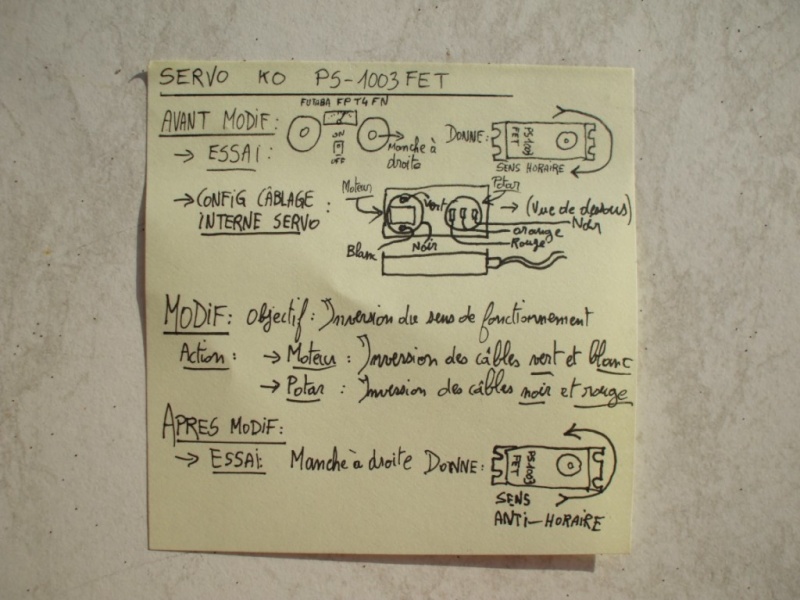 SERVO KO PS-1003FET
FUTABA FP T4 FN
AVANT MODIF:
→ ESSAI:
ON
OFF
Manche à
droite
DONNE:
PS1003
FET
SENS HORAIRE
→ CONFIG CÂBLAGE :
INTERNE SERVO
Moteur
Vert
Potar
→ (Vue de dessous)
Noir
orange
Rouge
Blanc
Noir
MODIF: Objectif: Inversion du sens de fonctionnement
Action: → Moteur : Inversion des câbles vert et blanc
→ Potar : Inversion des câbles noir et rouge
APRES MODIF:
→ ESSAI: Manche à droite DONNE:
PS1003
FET
SENS
ANTI-HORAIRE